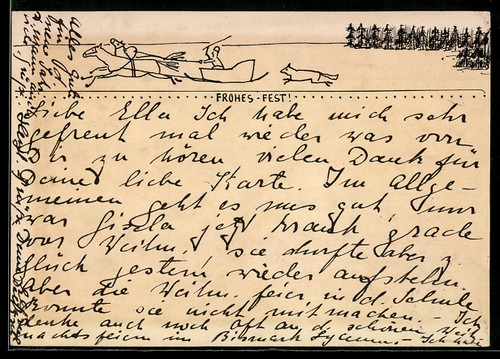 FROHES-FEST!
Liebe Ella Ich habe mich sehr
gefreut mal wieder was von
Dir zu hören vielen Dank für
Deine liebe Karte. Im Allge-
meinen geht es uns gut, nur
war Gisela jetzt krank, grade
vor Weihn. sie durfte aber z.
Glück gestern wieder aufstehn.
Aber die Weihn. feier in d. Schule
konnte sie nicht mitmachen. - Ich
denke auch noch oft an d. schönen Weih
nachtsfeiern im Bismark Lyceum - Ich
Alles Gute
für das
neue Jahr